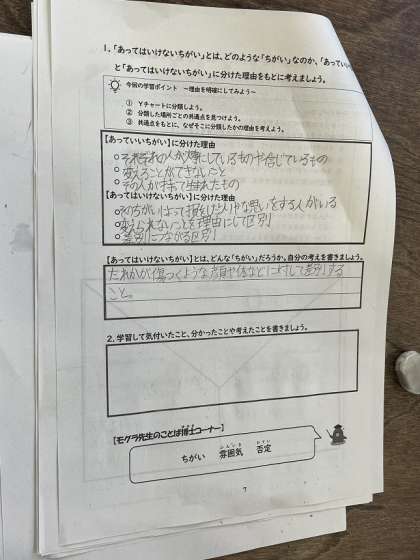 1．「あってはいけないちがい」とは、どのような「ちがい」なのか、「あってい
と「あってはいけないちがい」に分けた理由をもとに考えましょう。
今回の学習ポイント　～理由を明確にしてみよう～
① Yチャートに分類しよう。
② 分類した場所ごとの共通点を見つけよう。
③ 共通点をもとに、なぜそこに分類したかの理由を考えよう。
【あっていいちがい】に分けた理由
○それぞれの人が大事にしているものや信じているもの
○変えることができないこと
○その人が持って生まれたもの
【あってはいけないちがい】に分けた理由
○そのちがいによって損をしたりいやな思いをする人がいる
○変えられないことを理由にして区別
○差別につながる区別
【あってはいけないちがい】とは、どんな「ちがい」だろうか。自分の考えを書きましょう。
だれかが傷つくような顔や体などに対して差別する
こと。
2．学習して気付いたこと、分かったことや考えたことを書きましょう。
【モグラ先生のことば博士コーナー】
ちがい　雰囲気　否定
ふんいき　ひてい
7